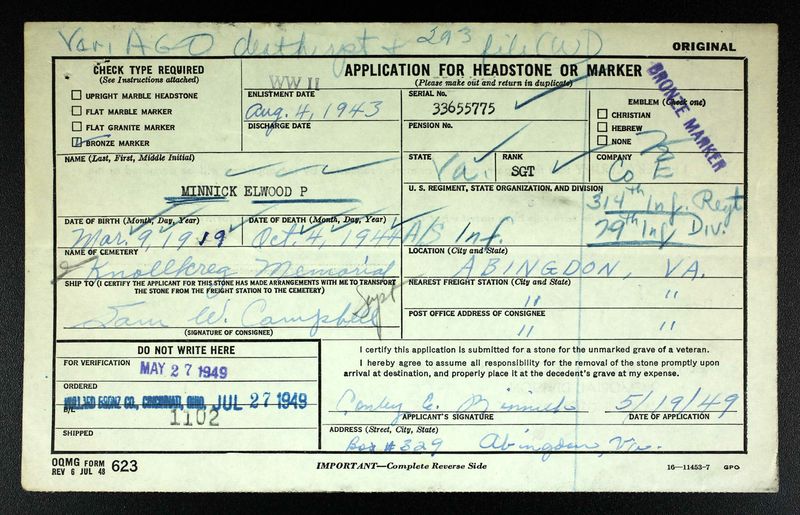 Veri AGO death rpt + 293 file (W)
ORIGINAL
CHECK TYPE REQUIRED
(See Instructions attached)
UPRIGHT MARBLE HEADSTONE
FLAT MARBLE MARKER
FLAT GRANITE MARKER
BRONZE MARKER
WW II
ENLISTMENT DATE
Aug. 4, 1943
DISCHARGE DATE
APPLICATION FOR HEADSTONE OR MARKER
(Please make out and return in duplicate)
SERIAL No.
33655775
PENSION No.
EMBLEM (Check one)
CHRISTIAN
HEBREW
NONE
BRONZE MARKER
NAME (Last, First, Middle Initial)
MINNICK ELWOOD P
STATE
Va.
RANK
SGT
COMPANY
Co E
U. S. REGIMENT, STATE ORGANIZATION, AND DIVISION
314th Inf. Regt
79th Inf Div.
A/S Inf.
DATE OF BIRTH (Month, Day, Year)
Mar. 9, 1919
DATE OF DEATH (Month, Day, Year)
Oct. 4, 1944
NAME OF CEMETERY
Knollkreg Memorial
LOCATION (City and State)
ABINGDON, VA.
SHIP TO (I CERTIFY THE APPLICANT FOR THIS STONE HAS MADE ARRANGEMENTS WITH ME TO TRANSPORT
THE STONE FROM THE FREIGHT STATION TO THE CEMETERY)
Sam W. Campbell Supt
(SIGNATURE OF CONSIGNEE)
NEAREST FREIGHT STATION (City and State)
" "
POST OFFICE ADDRESS OF CONSIGNEE
" "
DO NOT WRITE HERE
FOR VERIFICATION
MAY 27 1949
ORDERED
BRONZ CO., CINCINNATI, OHIO JUL 27 1949
B/L
1102
SHIPPED
I certify this application is submitted for a stone for the unmarked grave of a veteran.
I hereby agree to assume all responsibility for the removal of the stone promptly upon
arrival at destination, and properly place it at the decedent's grave at my expense.
Conley E. Minnick 5/19/49
APPLICANT'S SIGNATURE
DATE OF APPLICATION
ADDRESS (Street, City, State)
Box #329 Abingdon, Va.
OQMG FORM 623
REV 6 JUL 48
IMPORTANT—Complete Reverse Side
16—11453-7 GPO